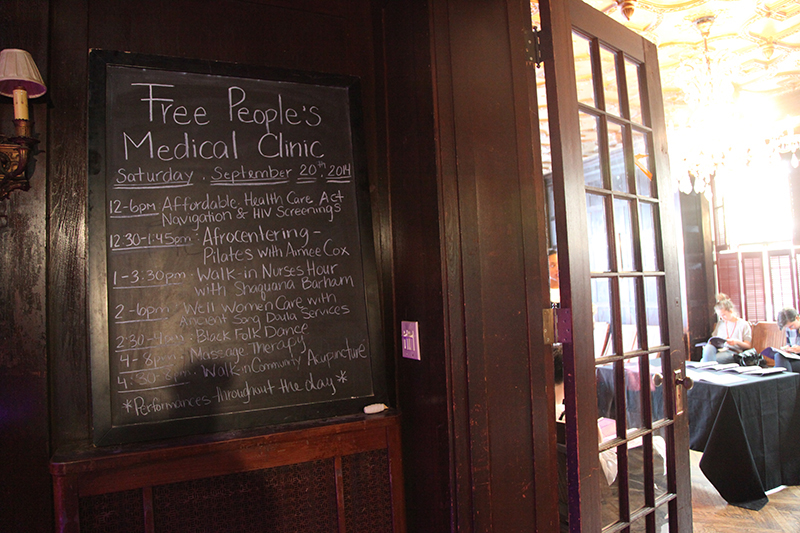 Free People's
Medical Clinic
Saturday, September 20th, 2014
12-6pm Affordable Health Care Act
Navigation & HIV Screenings
12:30-1:45pm · Afrocentering -
Pilates with Aimee Cox
1-3:30pm · Walk-in Nurses Hour
with Shaquana Barham
2-6pm · Well Women Care with
Ancient Song Doula Services
2:30-4pm · Black Folk Dance
4-8pm · Massage Therapy
4:30-8pm · Walk-in Community Acupuncture
*Performances throughout the day*